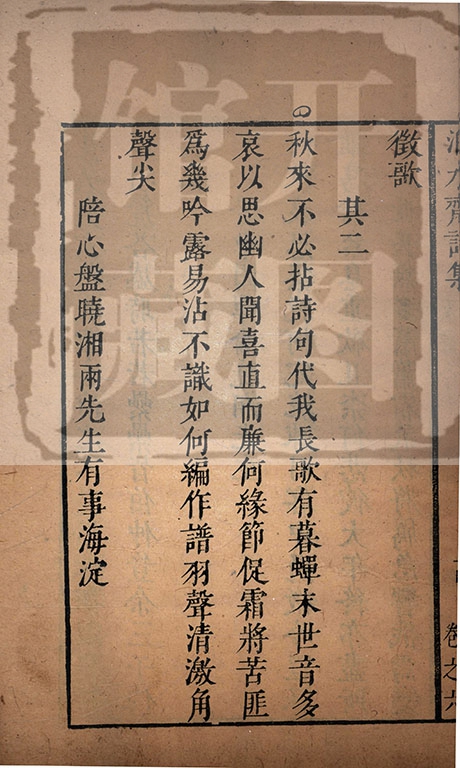 徵歌
其二
秋來不必拈詩句代我長歌有暮蟬末世音多
哀以思幽人聞喜直而廉何緣節促霜將苦匪
爲幾吟露易沾不識如何編作譜羽聲清激角
聲尖
陪心盤曉湘雨先生有事海淀
齋詩集
卷之六